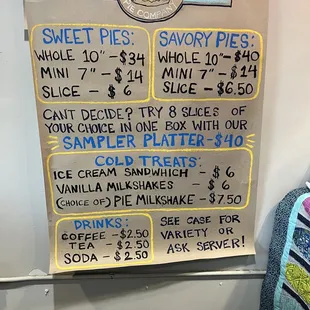 PIE COMPANY
SWEET PIES:
WHOLE 10" - $34
MINI 7" - $14
SLICE - $6
SAVORY PIES:
WHOLE 10" - $40
MINI 7" - $14
SLICE - $6.50
CAN'T DECIDE? TRY 8 SLICES OF
YOUR CHOICE IN ONE BOX WITH OUR
SAMPLER PLATTER - $40
COLD TREATS:
ICE CREAM SANDWHICH - $6
VANILLA MILKSHAKES - $6
(CHOICE OF) PIE MILKSHAKE - $7.50
DRINKS:
COFFEE - $2.50
TEA - $2.50
SODA - $2.50
SEE CASE FOR
VARIETY OR
ASK SERVER!